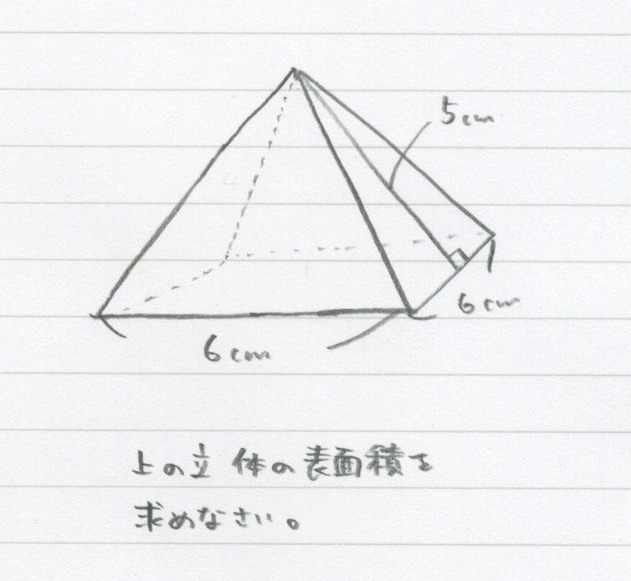 5cm
6cm
6cm
上の立体の表面積を
求めなさい。